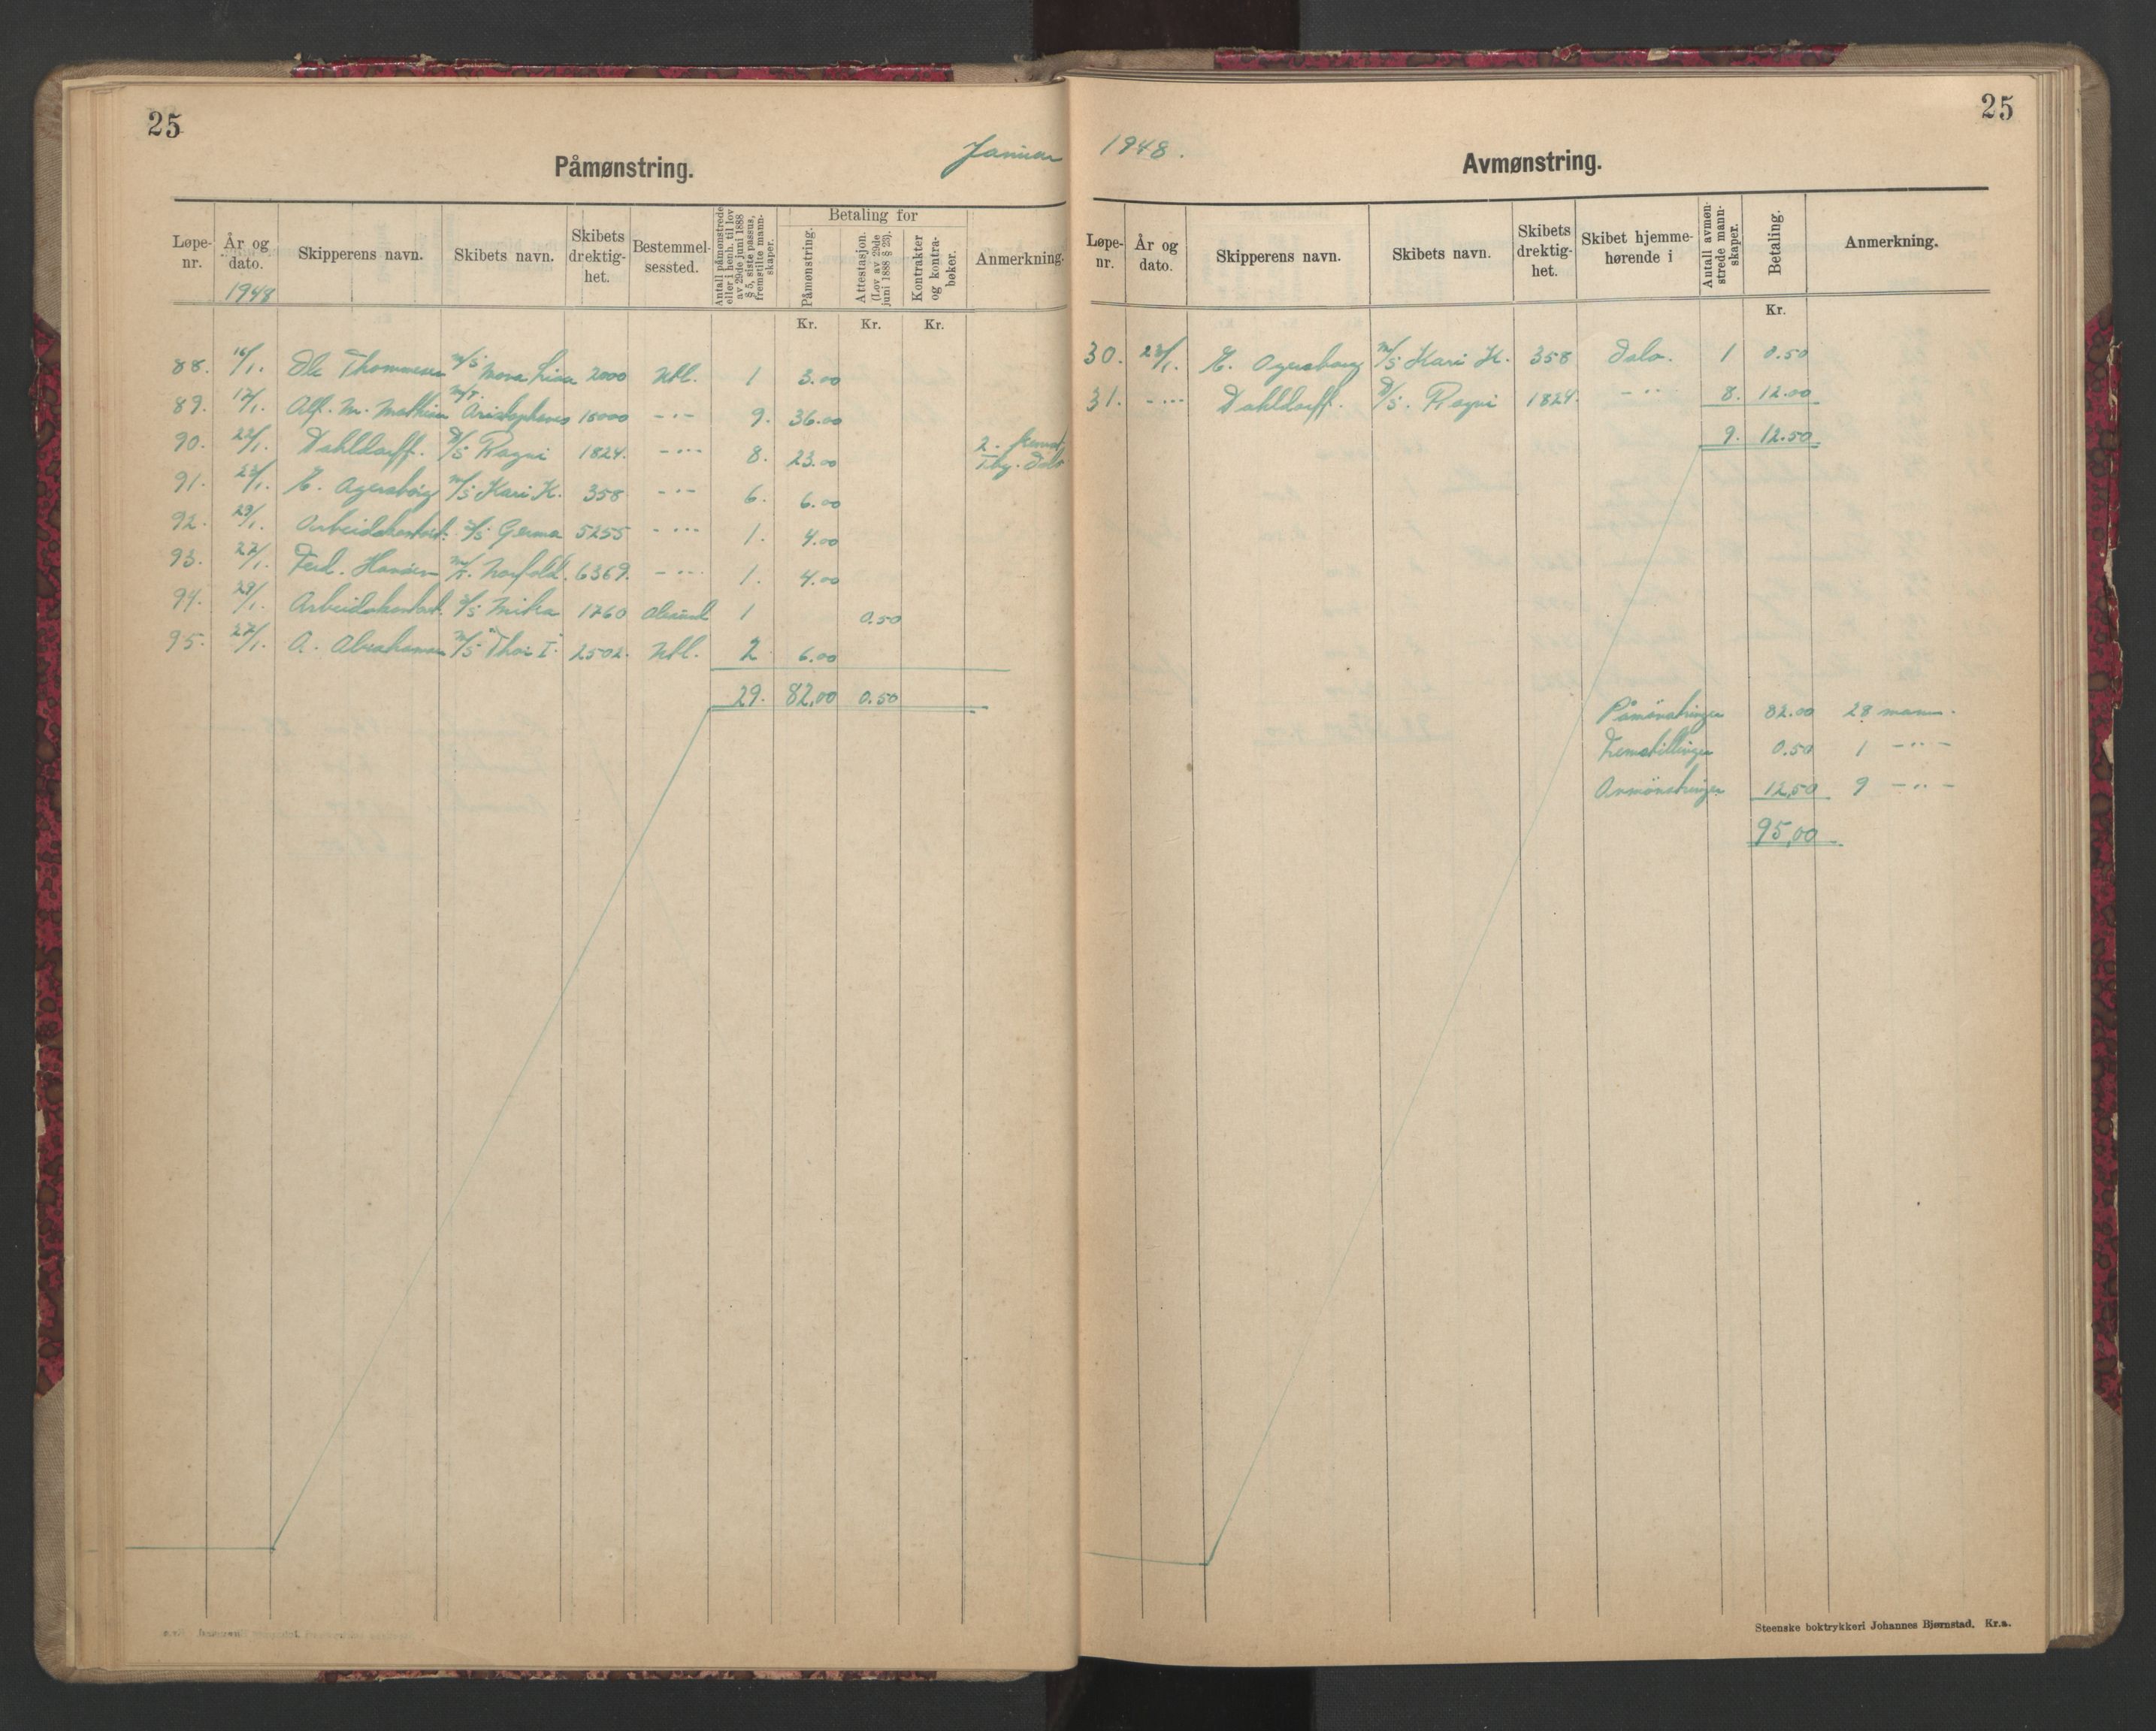 25
Påmønstring.
Januar
Løpe-nr. År og dato. Skipperens navn. Skibets navn. Skibets drektig-het. Bestemmel-sessted. Antal i påmønstrede eller i henh. til lov av 29de juni 1888 § 5, siste passus, fremstilte mann-skaper. Betaling for Påmønstring. Attestasjon. (Lov av 29de juni 1888 § 23). Kontrakter og kontra-bøker. Anmerkning.
1948
Kr. Kr. Kr.
88. 16/1. Ole Thommesen M/S Mona Lisa 2000 Utl. 1 3.00
89. 17/1. Alf. M. Mathisen M/T. Aristophanes 15000 -"- 9. 36.00
90. 22/1. Dahldorff. D/S Ragni 1824. -"- 8. 23.00 2.
91. 23/1. E. Agersborg M/S Kari K. 358 -"- 6. 6.00
92. 29/1. Arbeidskontoret. D/S Germa 5255 -"- 1. 4.00
93. 27/1. Ferd. Hansen M/T. Norfold. 6369. -"- 1. 4.00
94. 29/1. Arbeidskontoret. D/S Mika 1760 Ålesund 1 0.50
95. 27/1. A. Abrahamsen M/S "Thor I" 2502. Utl. 2 6.00
29. 82,00 0.50
25
1948.
Avmønstring.
Løpe-nr. År og dato. Skipperens navn. Skibets navn. Skibets drektig-het. Skibet hjemme-hørende i Antall avmøn-strede mann-skaper. Betaling. Anmerkning.
Kr.
30. 23/1. E. Agersborg M/S Kari K. 358 Oslo. 1 0.50
31. -"- Dahldorff. D/S. Ragni 1824. -"- 8. 12.00
9. 12.50
Påmönstringer 82.00 28 mann.
Fremstillinger 0.50 1 -"-
Avmönstringer 12,50 9 -"-
95,00
Steenske boktrykkeri Johannes Bjørnstad, Kr.a.